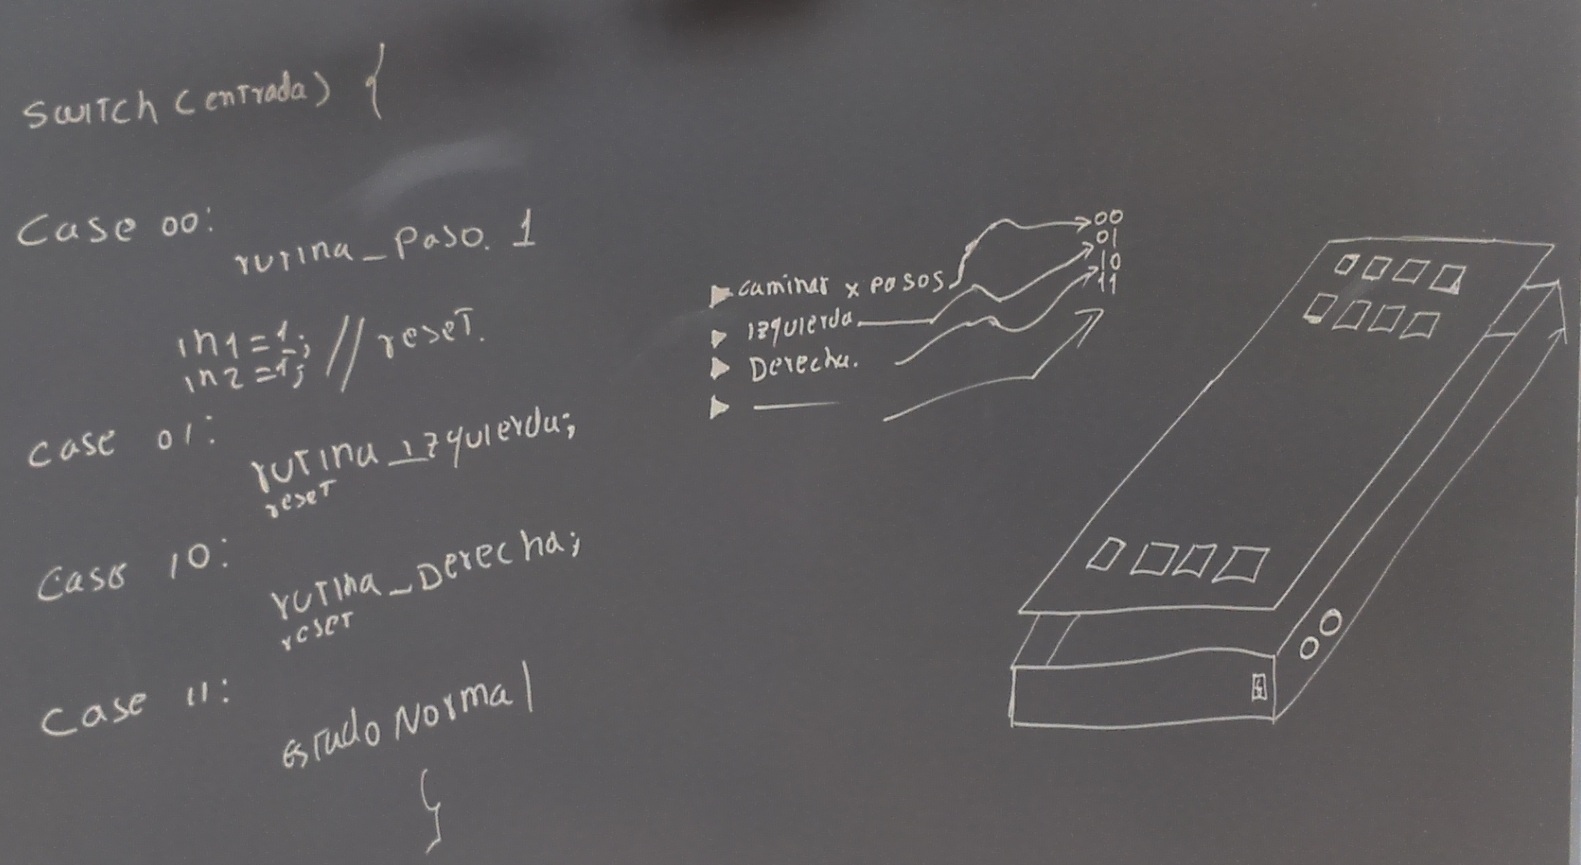 switch (entrada) {
Case 00:
rutina_paso. 1
in1=1; // reset.
in2=1;
case 01:
rutina_izquierda;
reset
Case 10:
rutina_Derecha;
reset
Case 11:
estado Normal
}
caminar x pasos
izquierda
Derecha.
00
01
10
11